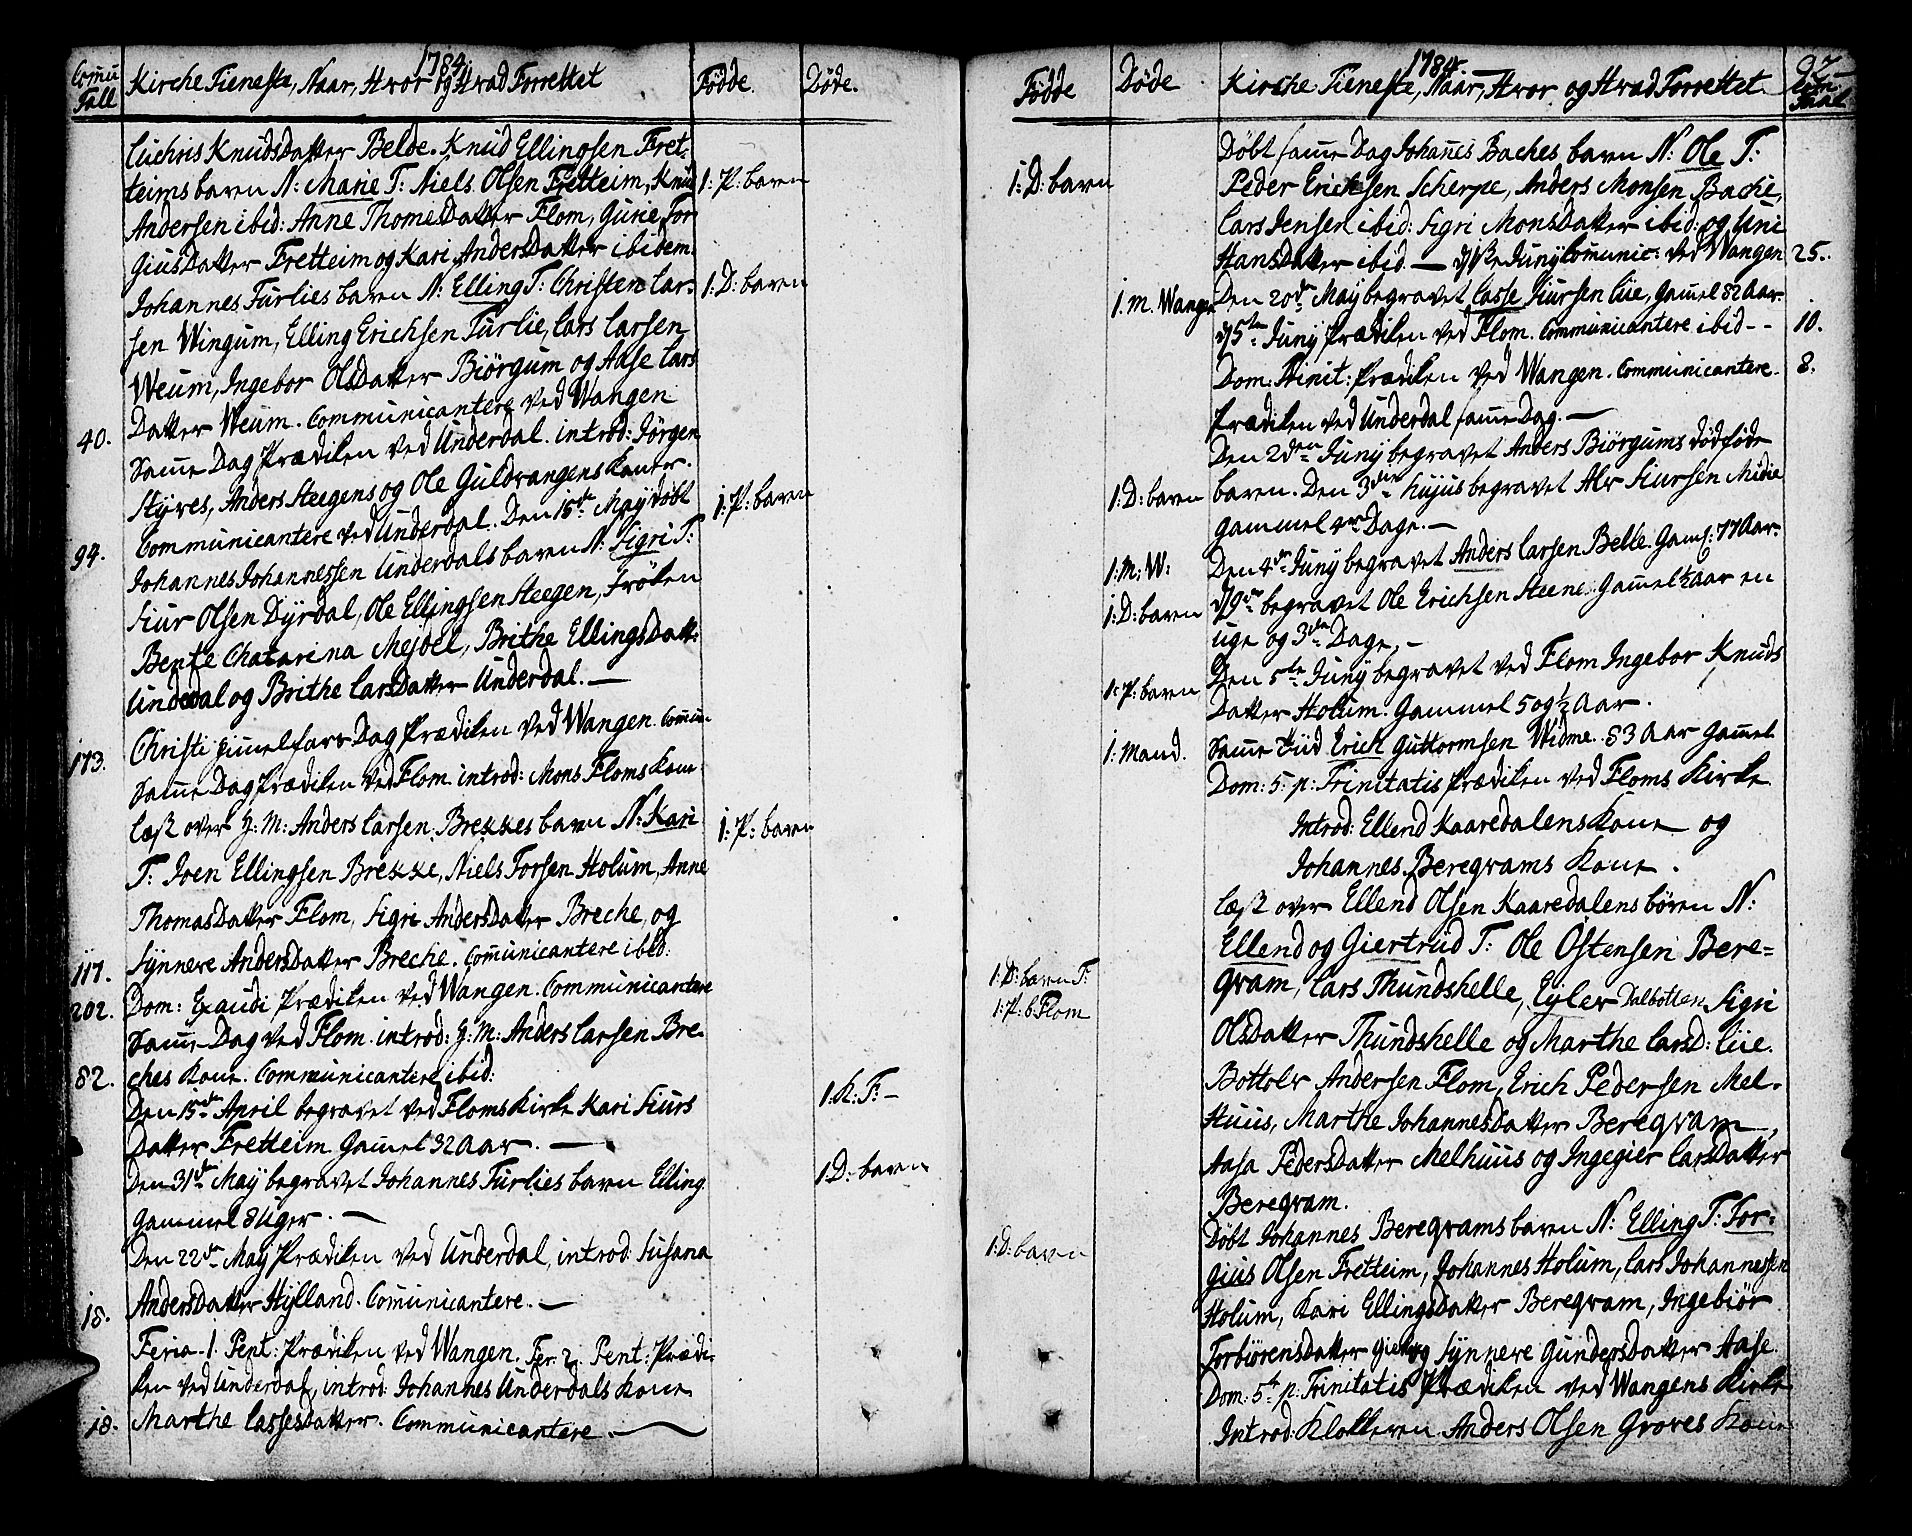 1784.
Comu Tall
Kirche Tieneste, Naar, Hvor og Hvad Forrettet
Födde.
Döde.
Cuchris Knudsdatter Belde. Knud Ellingsen Fret-
teims barn N: Marie T: Niels Olsen Fretteim, Knud
1: P: barn
Andersen ibid: Anne Thomesdatter Flom, Gurie Tor
giusDatter Fretteim og Kari Andersdatter ibidem.
Johannes Furlies barn N: Elling T: Christen Lar-
1: D: barn
sen Wingum, Elling Erichsen Furlie, Lars Larsen
Weum, Ingebor Olsdatter Biörgum og Aase Lars
Datter Weum. Communicantere ved Wangen
40.
Samme Dag Prædiken ved Underdal. introd: Jörgen
Styves, Anders Steegens og Ole Guldvangens Koner.
Communicantere ved Underdal. Den 15de May döbt
94.
1: P: barn
Johannes Johannessen Underdals barn N: Sigri T:
Siur Olsen Dyrdal, Ole Ellingsen Steegen, Fröken
Bente Chatarina Mejdel, Brithe Ellingsdatt:
Undedal og Brithe Larsdatter Underdal. —
Christi Himmelfarts Dag Prædiken ved Wangen. Commun-
173.
Samme Dag Prædiken ved Flom. introd: Mons Floms Kone
Læst over H: M: Anders Larsen Brekkes barn N: Kari
1: P: barn
T: Joen Ellingsen Brekke, Niels Torsen Holum, Anne
Thomasdatter Flom, Sigri Andersdatter Breche, og
Synnere Andersdatter Breche. Communicantere ibid:
117.
Dom: Exaudi Prædiken ved Wangen. Communicantere
202.
Samme Dag ved Flom. introd: H: M: Anders Larsen Bre-
ches Kone. Communicantere ibid:
82.
Den 15de April begravet ved Floms Kirke Kari Siurs
1. K: F: –
Datter Fretteim Gamel 32 Aar. —
Den 31de May begravet Johannes Furlies barn Elling
1 D: barn
Gammel 8 Uger. —
Den 22de May Prædiken ved Underdal, introd: Susana
Andersdatter Hylland. Comunicantere. —
18.
Feria 1. Pent: Prædiken ved Wangen. Fer: 2. Pent: Prædi-
ken ved Underdal, introd: Johannes Underdals Kone
Marthe Lassesdatter. Communicantere. —
18.
1784.
92
Födde
Döde
Kirche Tieneste, Naar, Hvor og Hvad Forrettet
Com: Taal
Döbt samme Dag Johannes Baches barn N: Ole T:
1: D: barn
Peder Erichsen Scherpe, Anders Monsen Bache,
Lars Jensen ibid: Sigri Monsdatter ibid: og Uni
Hansdatter ibid. — Junÿ Comunic: ved Wangen
25.
1. M. Wangen
Den 20de May begravet Lasse Siursen Lie, Gamel 82 Aar.
5te Juny Prædiken ved Flom. Communicantere ibid - -
10.
Dom: Trinit: Prædiken ved Wangen. Communicantere.
8.
Prædiken ved Underdal samme Dag. —
Den 2den Juny begravet Anders Biörgums dödföde
1: D: barn
barn. Den 3die hujus begravet Alv Siursen Midie
Gammel Dage. —
1: M: W:
Den 4de Juny begravet Anders Larsen Belle. Gaml: 77 Aar.
1: D: barn
9de begravet Ole Erichsen Steene. Gamel ½ Aar en
uge og 3de Dage. –
1: P: barn
Den 5te Juny begravet ved Flom Ingebor Knuds
Datter Holum. Gammel 5 og ½ Aar.
1. Mand.
Samme Tiid Erich Guttormsen Widme. 83 Aar gamel
Dom: 5. p: Trinitatis Prædiken ved Floms Kirke
Introd: Ellend Kaaredalens Kone og
Johannes Beregvams Kone.
Læst over Ellend Olsen Kaaredalens börn N:
Ellend og Giertrüd T: Ole Ostensen Bere=
1: D: barn F:
gvam, Lars Thundshelle, Eyler Dalbotten, Sigri
1: P: b: Flom
Olsdatter Thundshelle og Marthe Larsd: Lie.
Bottolv Andersen Flom, Erich Pedersen Mel-
Huus, Marthe Johannesdatter Beregvam,
Aasa Pedersdatter Melhuus og Ingegier Larsdatter
Beregvam.
Döbt Johannes Beregvams barn N: Elling T: Tor-
1: D: barn
gius Olsen Fretteim, Johannes Holum, Lars Johannessen
Holum, Kari Ellingsdatter Beregvam, Ingebiör
Torbiörensdatter og Synnere Gundersdatter Aase.
Dom: 5te p: Trinitatis Prædiken ved Wangens Kirke
Introd: Klokkeren Anders Olsen Groves Kone